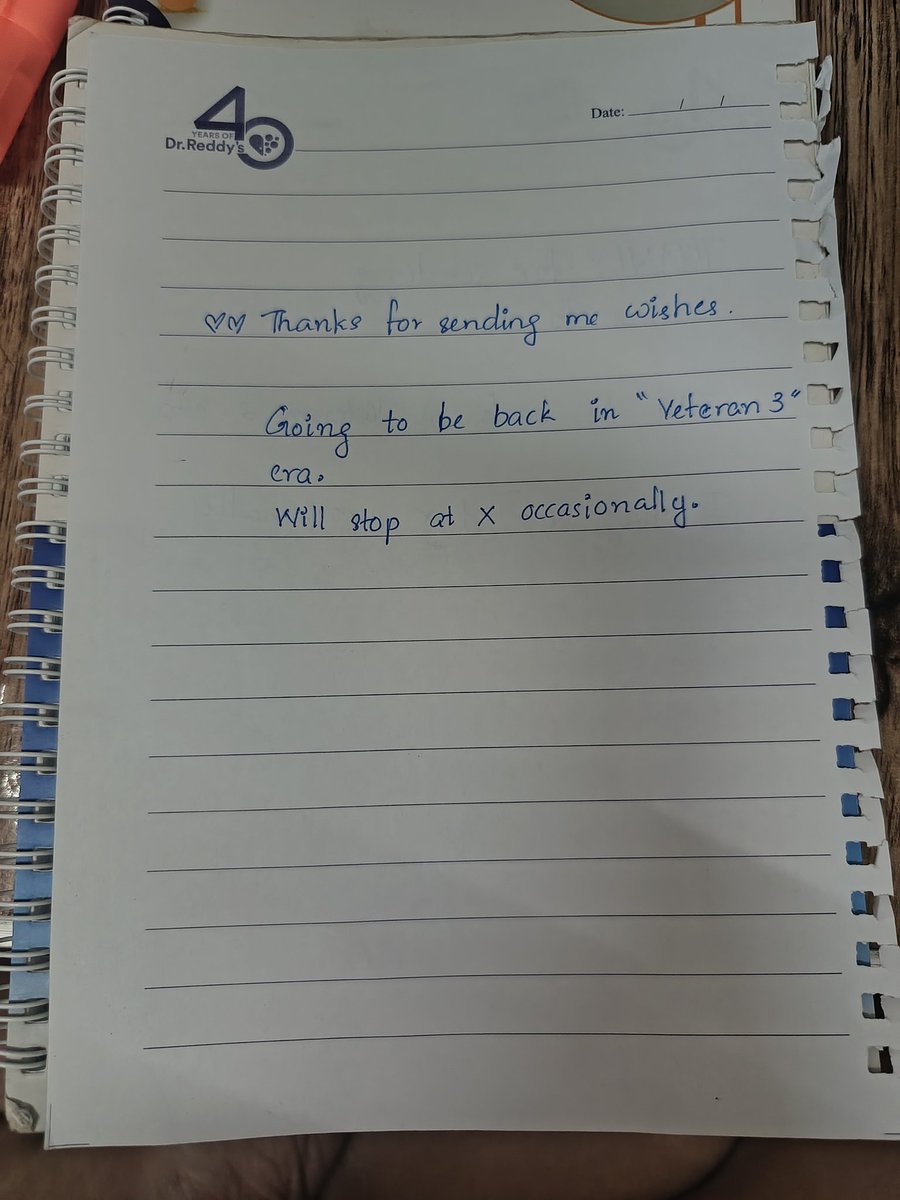 40
YEARS OF
Dr.Reddy's
Date: / /
♡♡ Thanks for sending me wishes.
Going to be back in "Veteran 3"
era.
Will stop at X occasionally.